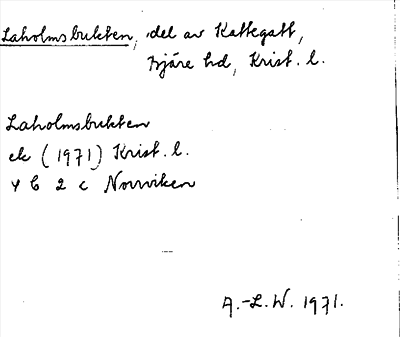 Laholmsbukten, del av Kattegatt,
Bjäre hd, Krist. l.
Laholmsbukten
ek (1971) Krist. l.
4 C 2 c Norrviken
A.-L. W. 1971.